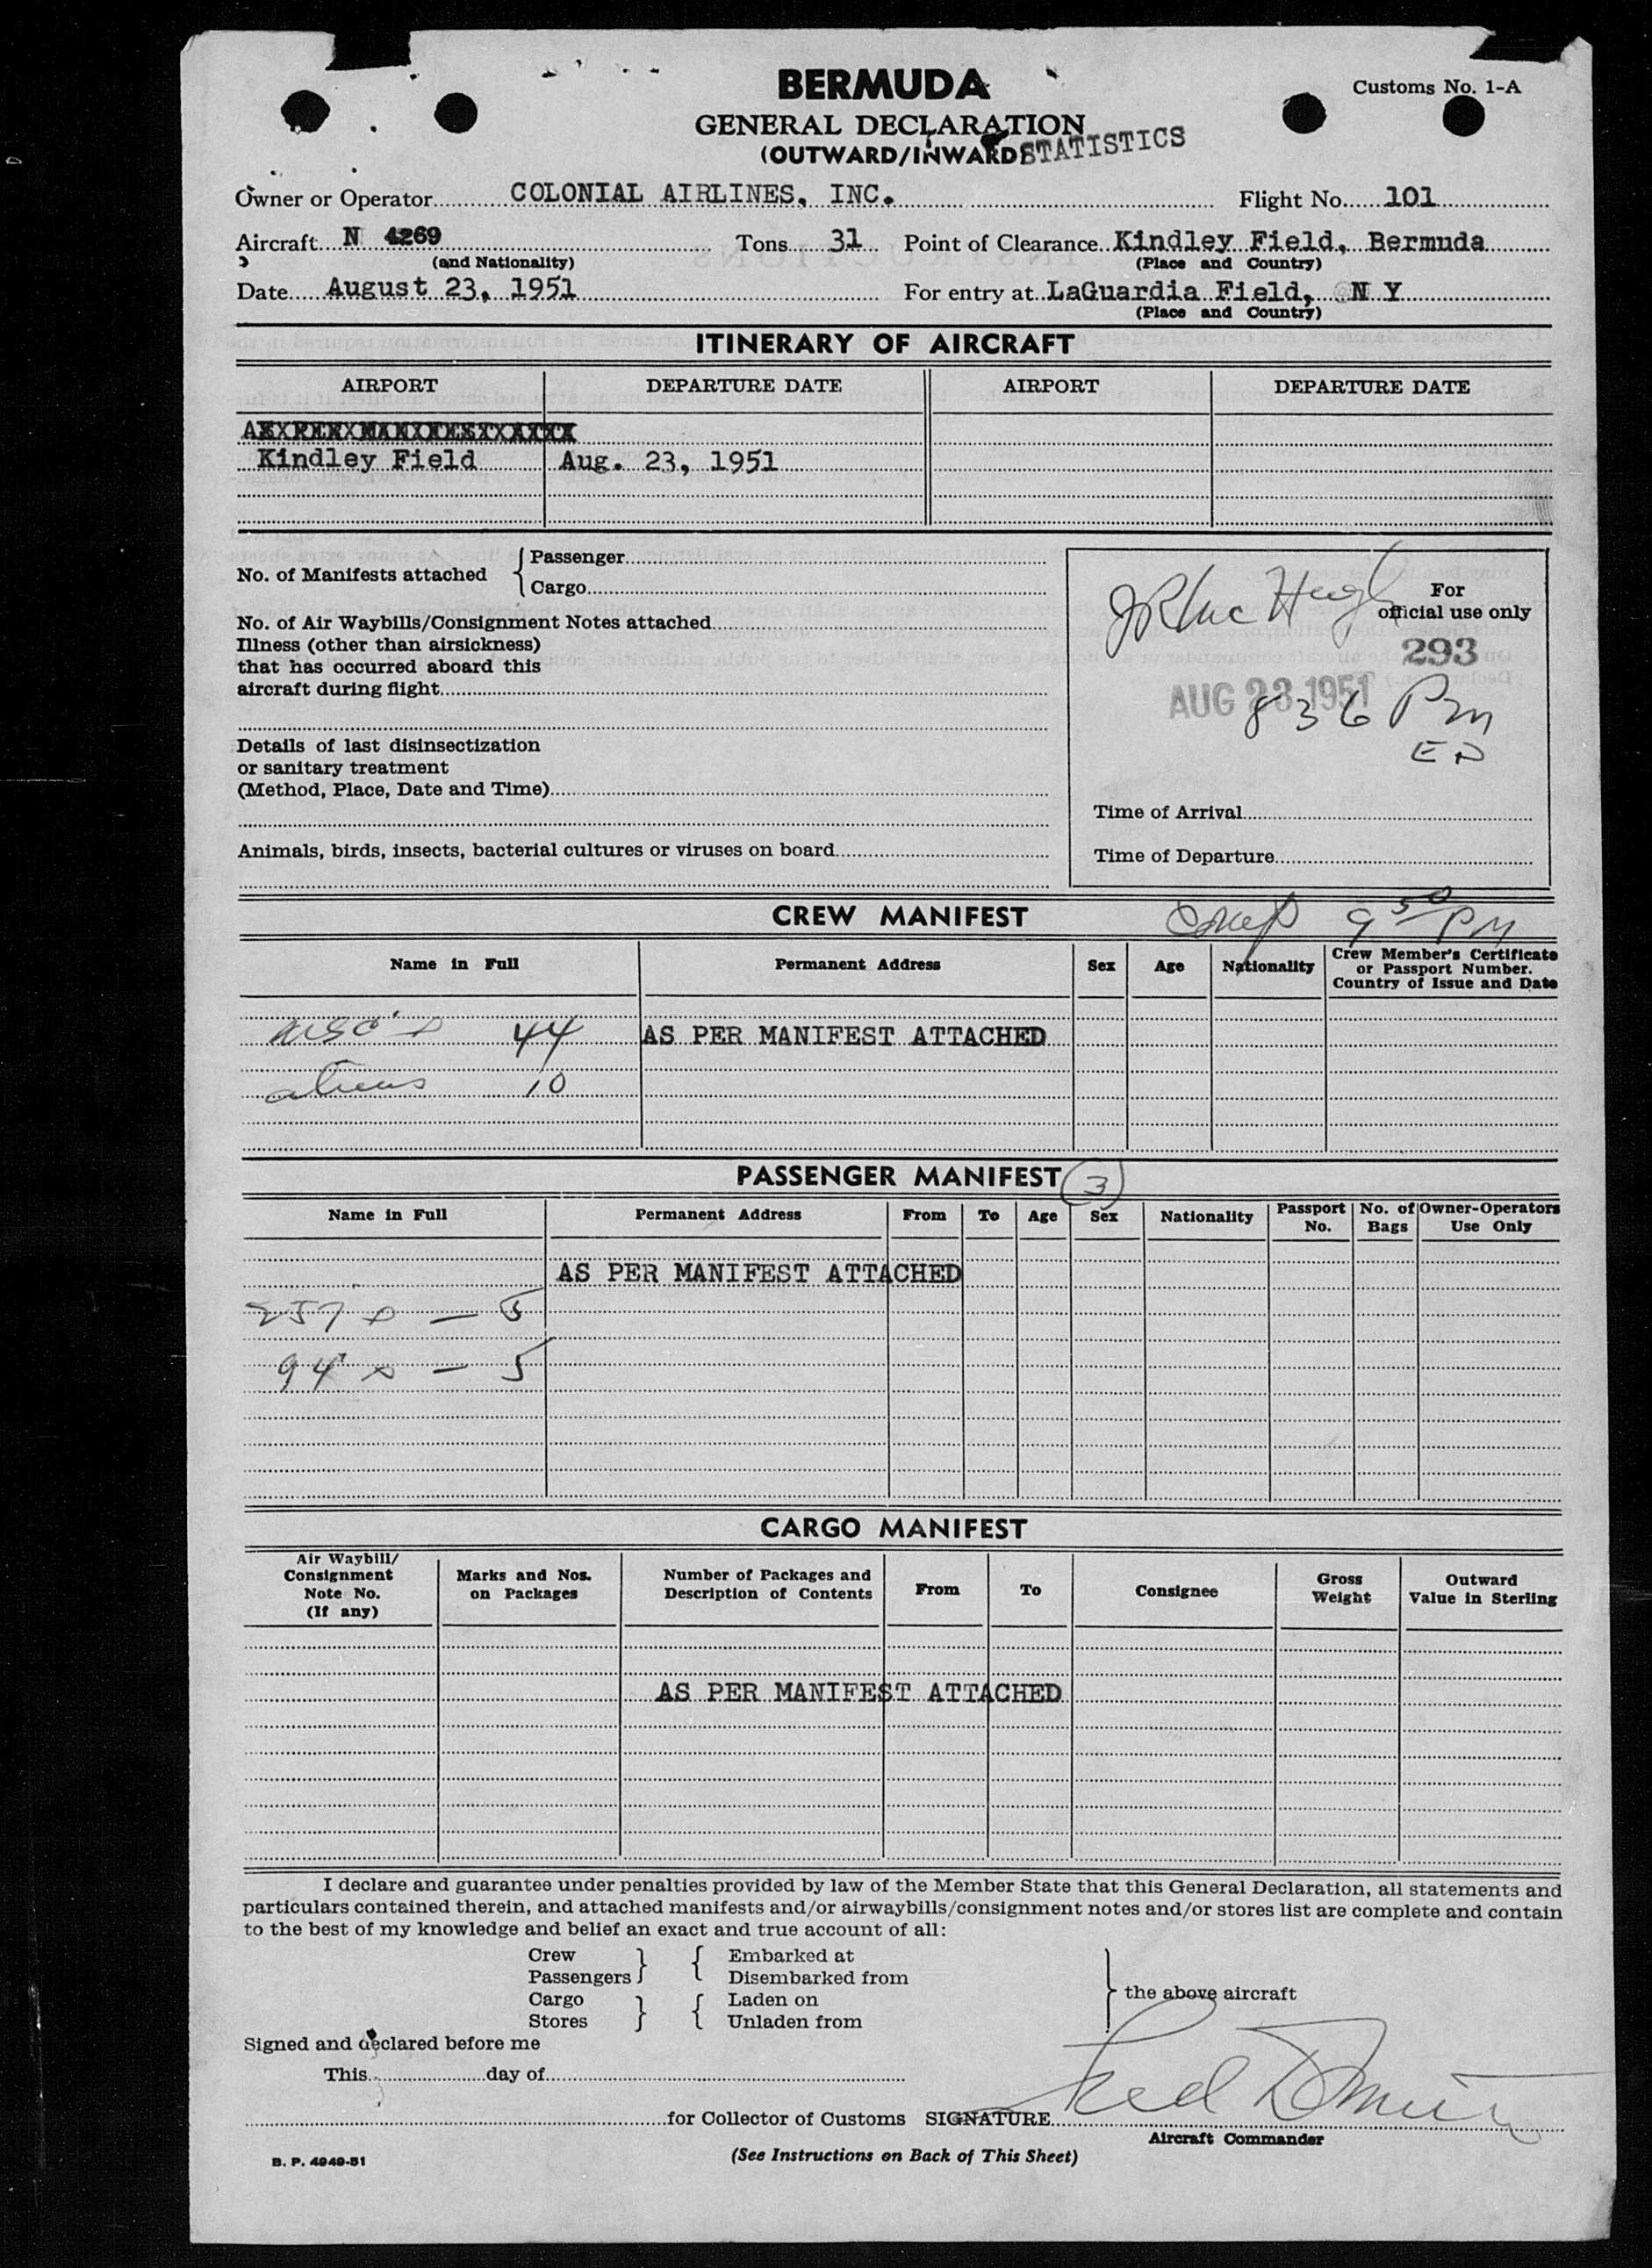 BERMUDA
Customs No. 1-A
GENERAL DECLARATION
(OUTWARD/INWARD)
STATISTICS
Owner or Operator COLONIAL AIRLINES, INC. Flight No. 101
Aircraft N 4269 Tons 31 Point of Clearance Kindley Field, Bermuda
(and Nationality) (Place and Country)
Date August 23, 1951 For entry at LaGuardia Field, N Y
(Place and Country)
ITINERARY OF AIRCRAFT
AIRPORT DEPARTURE DATE AIRPORT DEPARTURE DATE
Kindley Field Aug. 23, 1951
No. of Manifests attached { Passenger
Cargo
No. of Air Waybills/Consignment Notes attached
Illness (other than airsickness)
that has occurred aboard this
aircraft during flight
Details of last disinsectization
or sanitary treatment
(Method, Place, Date and Time)
Animals, birds, insects, bacterial cultures or viruses on board
For
official use only
293
AUG 23 1951
8 36 PM
Time of Arrival
Time of Departure
CREW MANIFEST
9 50 PM
Name in Full Permanent Address Sex Age Nationality Crew Member's Certificate
or Passport Number.
Country of Issue and Date
44 AS PER MANIFEST ATTACHED
aliens 10
PASSENGER MANIFEST 3
Name in Full Permanent Address From To Age Sex Nationality Passport No. No. of Bags Owner-Operators Use Only
AS PER MANIFEST ATTACHED
257 — 5
94 — 5
CARGO MANIFEST
Air Waybill/
Consignment
Note No.
(If any)
Marks and Nos.
on Packages
Number of Packages and
Description of Contents
From To Consignee
Gross
Weight
Outward
Value in Sterling
AS PER MANIFEST ATTACHED
I declare and guarantee under penalties provided by law of the Member State that this General Declaration, all statements and
particulars contained therein, and attached manifests and/or airwaybills/consignment notes and/or stores list are complete and contain
to the best of my knowledge and belief an exact and true account of all:
Crew } { Embarked at
Passengers } { Disembarked from
Cargo } { Laden on } the above aircraft
Stores } { Unladen from
Signed and declared before me
This day of
for Collector of Customs SIGNATURE
Aircraft Commander
B. P. 4949-51
(See Instructions on Back of This Sheet)